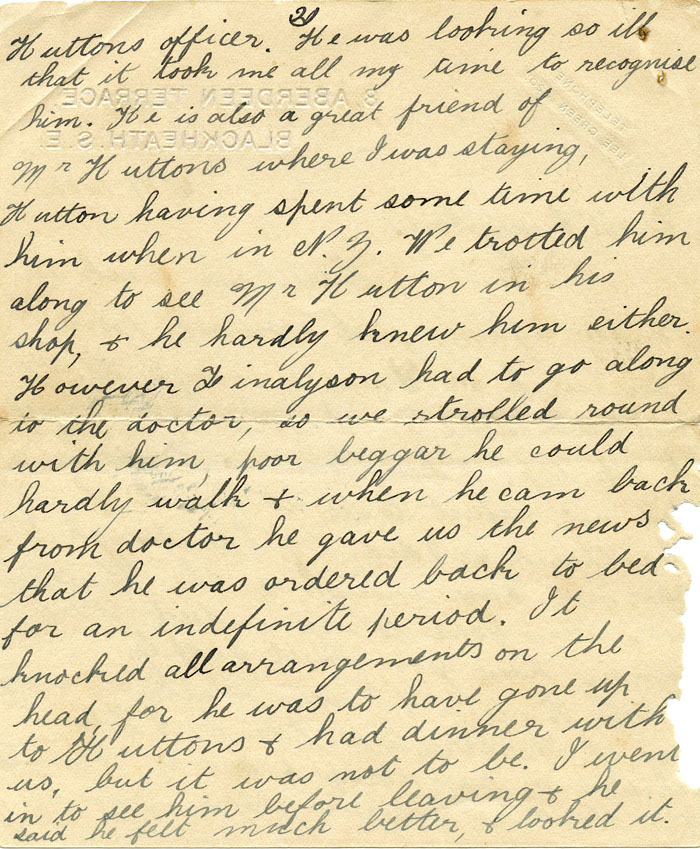 2)
Huttons officer. He was looking so ill
that it took me all my time to recognise
him. He is also a great friend of
Mr Huttons where I was staying,
Hutton having spent some time with
him when in N.Z. We trotted him
along to see Mr Hutton in his
shop, & he hardly knew him either.
However Finalyson had to go along
to the doctor, so we strolled round
with him, poor beggar he could
hardly walk & when he cam back
from doctor he gave us the news
that he was ordered back to bed
for an indefinite period. It
knocked all arrangements on the
head, for he was to have gone up
to Huttons & had dinner with
us, but it was not to be. I went
in to see him before leaving & he
said he felt much better, & looked it.
3 ABERDEEN TERRACE
BLACKHEATH. S.E.
TELEPHONE
LEE GREEN